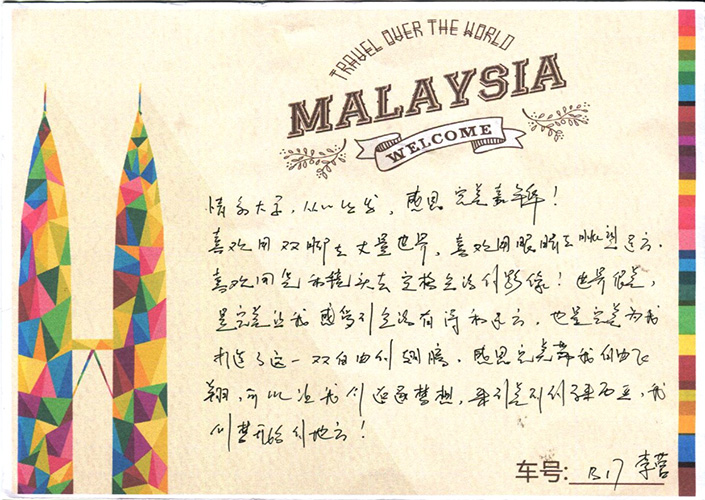 TRAVEL OVER THE WORLD
MALAYSIA
WELCOME
情系大马，从心出发，感恩完美嘉年华！
喜欢用双脚去丈量世界，喜欢用眼睛去眺望远方，
喜欢用笔和镜头去定格生活的影像！世界很美，
是完美让我感受到生活有诗和远方，也是完美为我
打造了这一双自由的翅膀，感恩完美带我自由飞
翔，可以让我们追逐梦想，来到美丽的马来西亚，我
们梦开始的地方！
车号: B17 李营